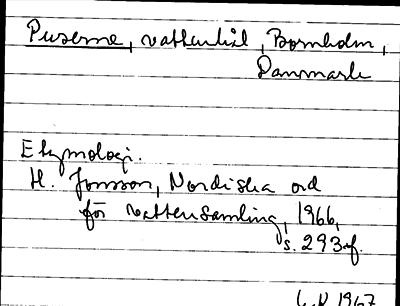 Puserne, vattenhål, Bornholm,
Danmark
Etymologi.
H. Jonsson, Nordiska ord
för vattensamling, 1966,
s. 293f.
1967